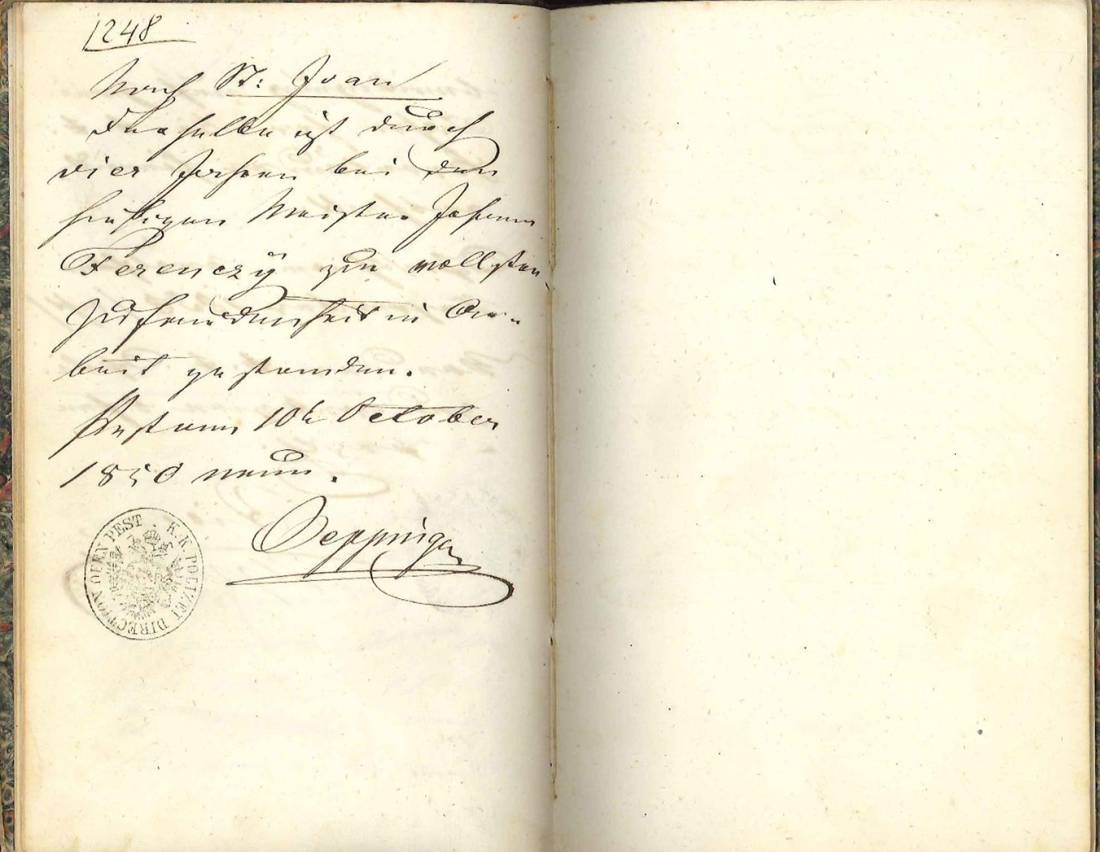 1248
Nach St: Ivan
Derselbe ist durch
vier Jahren bei den
hiesigen Meister Johann
Ferenczÿ zur vollsten
Zufriedenheit in Ar-
beit gestanden.
Pest am 10t October
1850 neun.
Seppinger
K. K. POLIZEI DIRECTION OFEN PEST